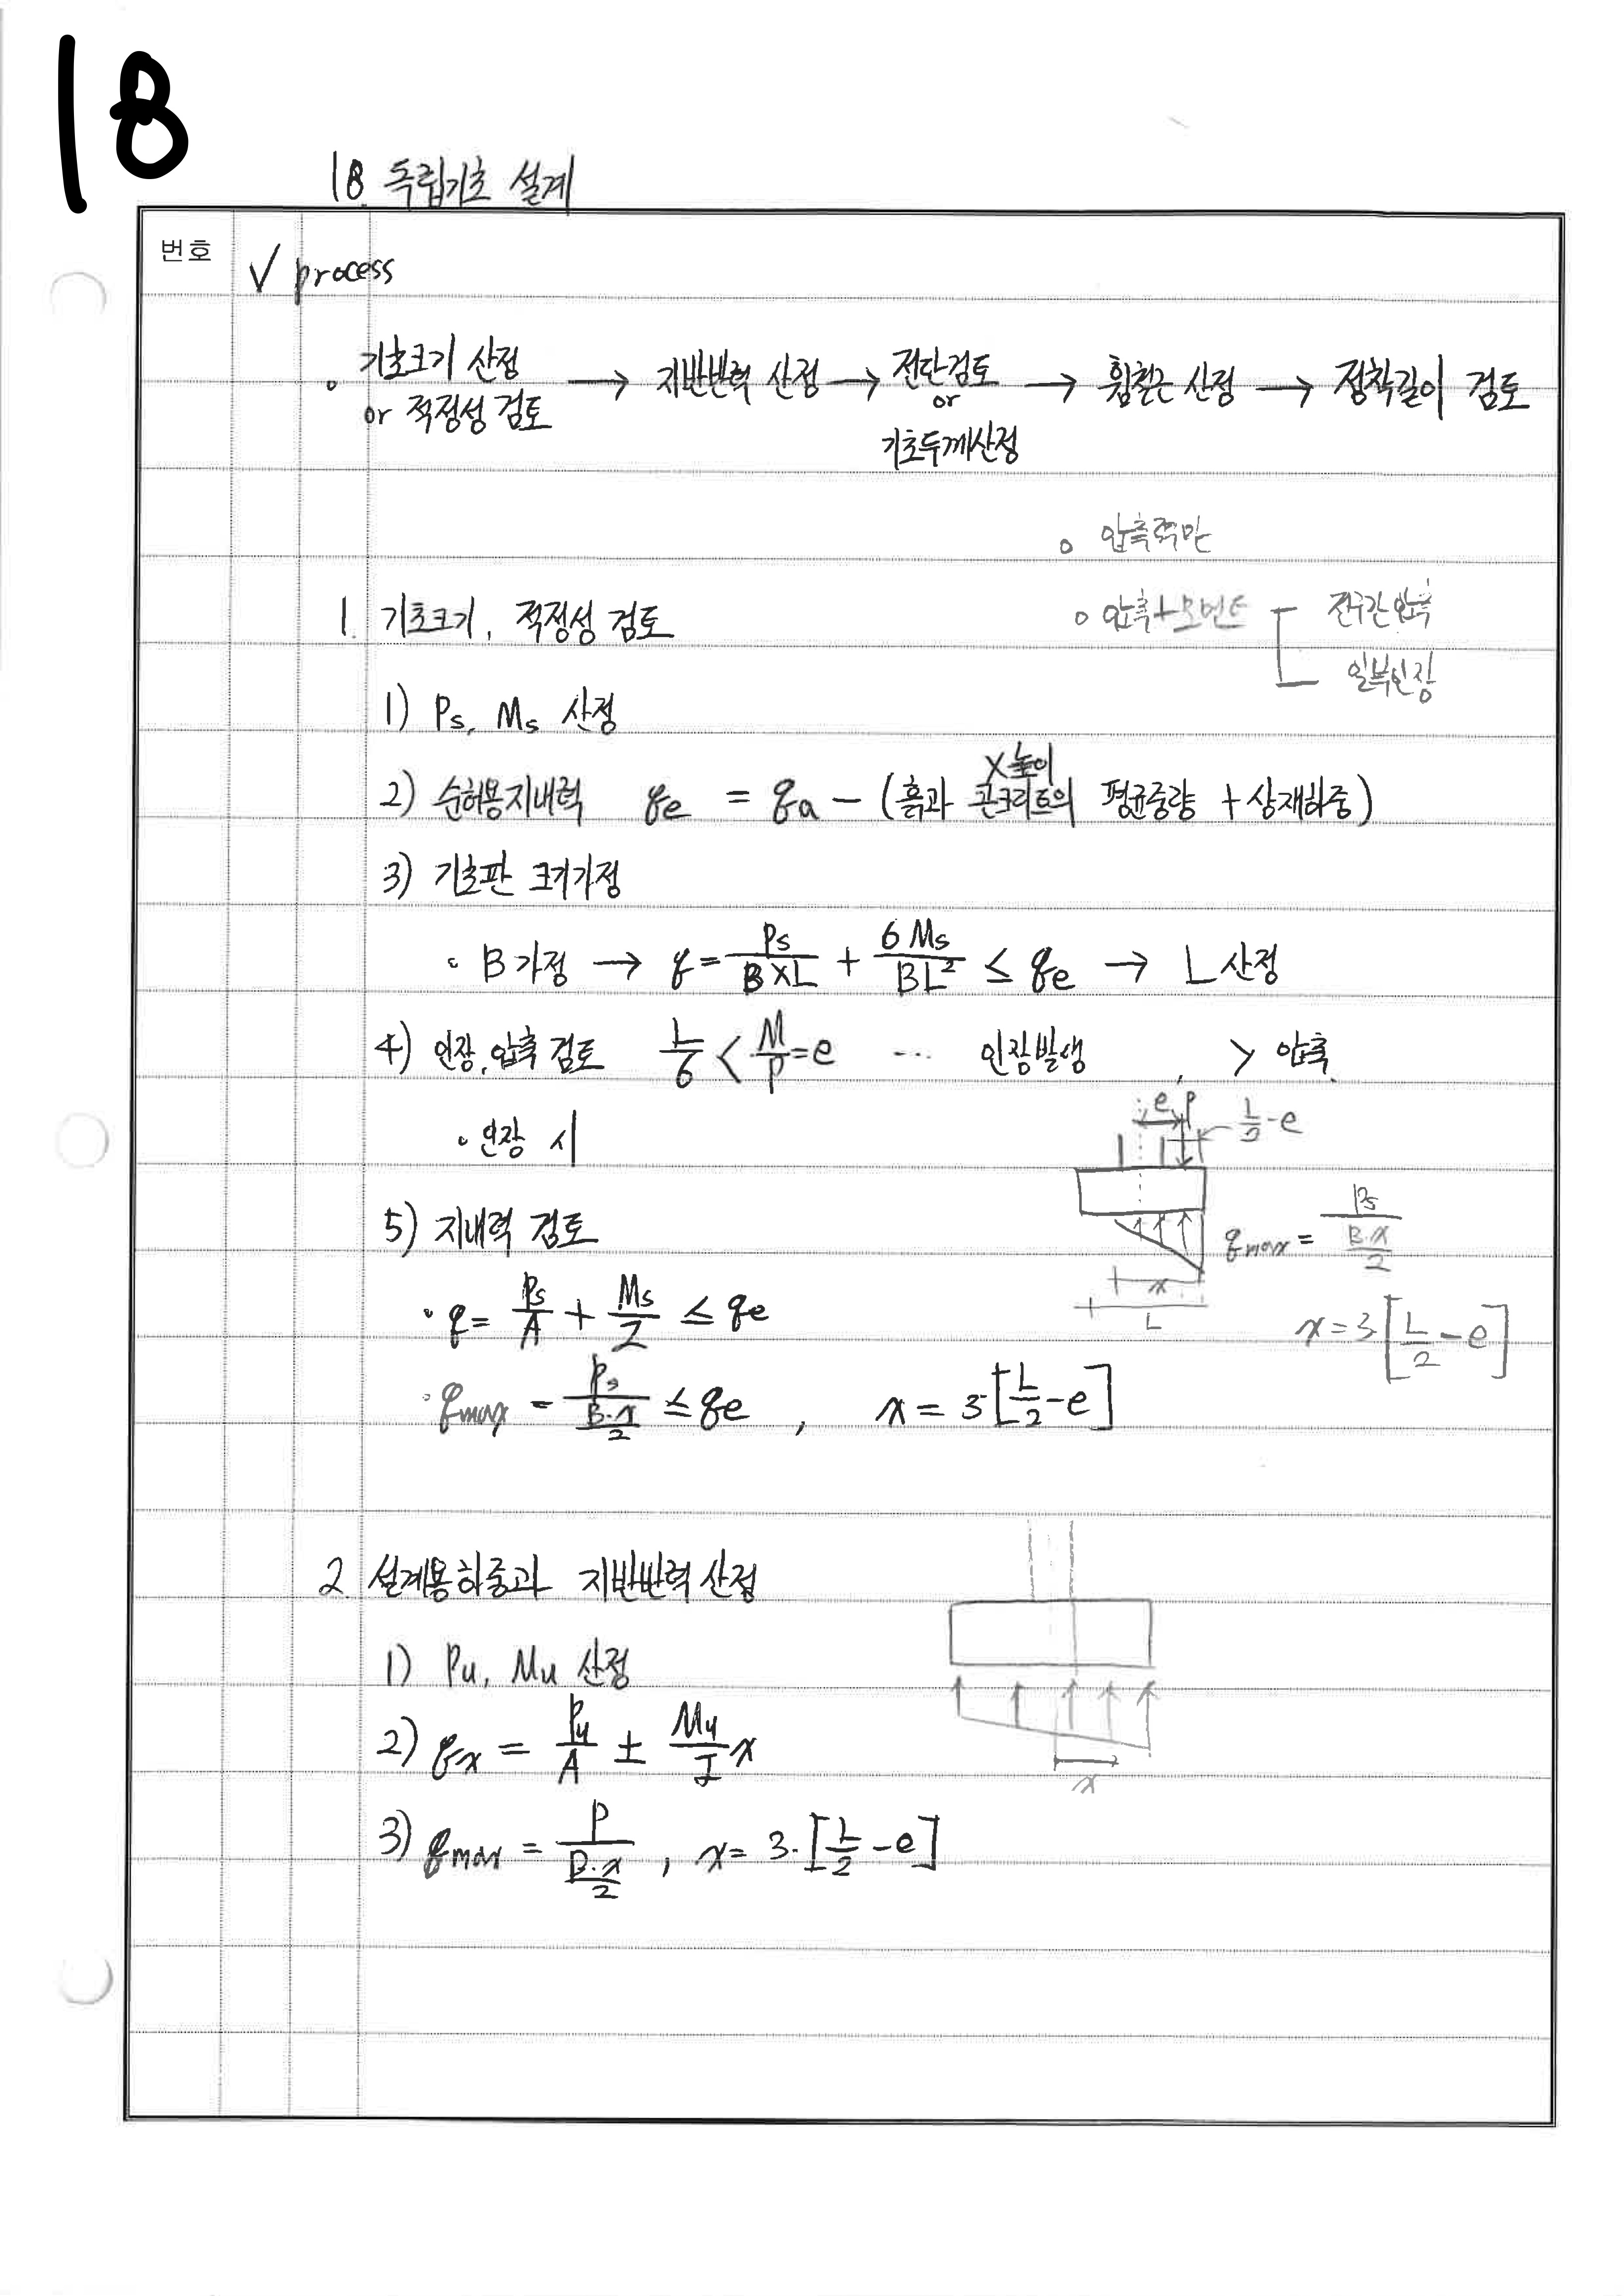 18
18. 독립기초 설계
번호
√ process
∘ 기초크기 산정 or 적정성 검토 → 지반반력 산정 → 전단검토 or 기초두께산정 → 휨철근 산정 → 정착길이 검토
∘ 압축력만
∘ 압축+모멘트 [ 전구간압축
일부인장
1. 기초크기, 적정성 검토
1) Ps, Ms 산정
2) 순허용지내력 qe = qa − (흙과 콘크리트의 평균중량 ×높이 + 상재하중)
3) 기초판 크기가정
∘ B가정 → q = Ps/(B×L) + 6Ms/(BL²) ≤ qe → L 산정
4) 인장, 압축 검토 L/6 < M/P = e … 인장발생, > 압축.
∘ 인장 시
e P L/2 − e
x
L
qmax = Ps/(B·x/2)
x = 3·[L/2 − e]
5) 지내력 검토
∘ q = Ps/A + Ms/Z ≤ qe
∘ qmax = Ps/(B·x/2) ≤ qe , x = 3[L/2 − e]
2. 설계용하중과 지반반력 산정
1) Pu, Mu 산정
2) qx = Pu/A ± Mu/I x
x
3) qmax = P/(B·x/2) , x = 3·[L/2 − e]